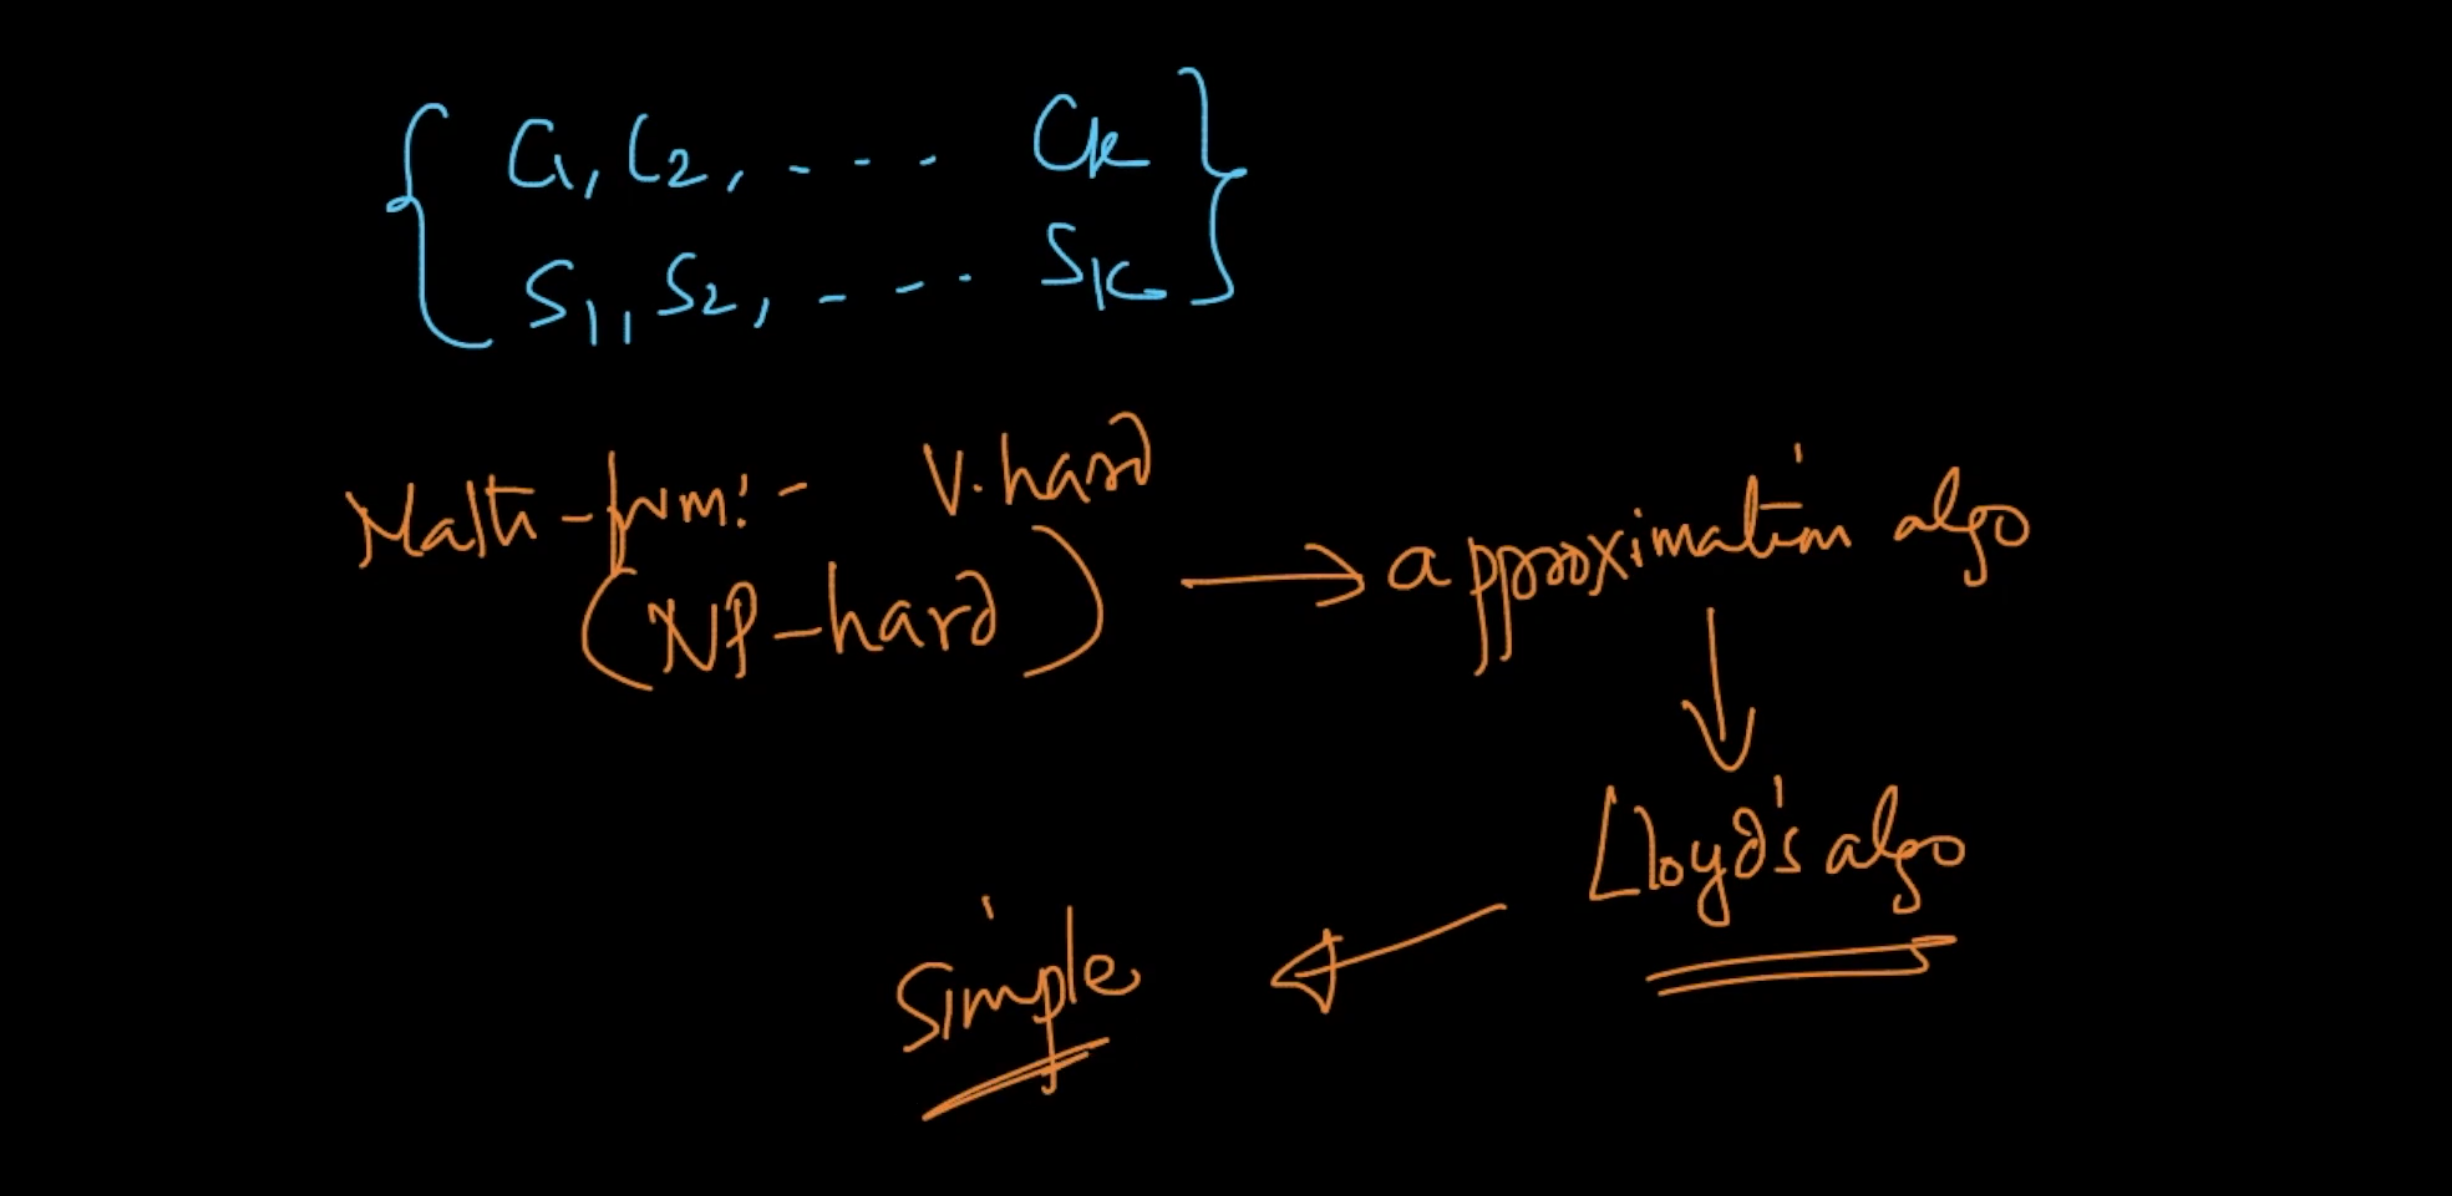 { C1, C2, - - - - Ck }
S1, S2, - - - - Sk
Math-form:- V.hard
(NP-hard) → approximation algo
Lloyd's algo
Simple